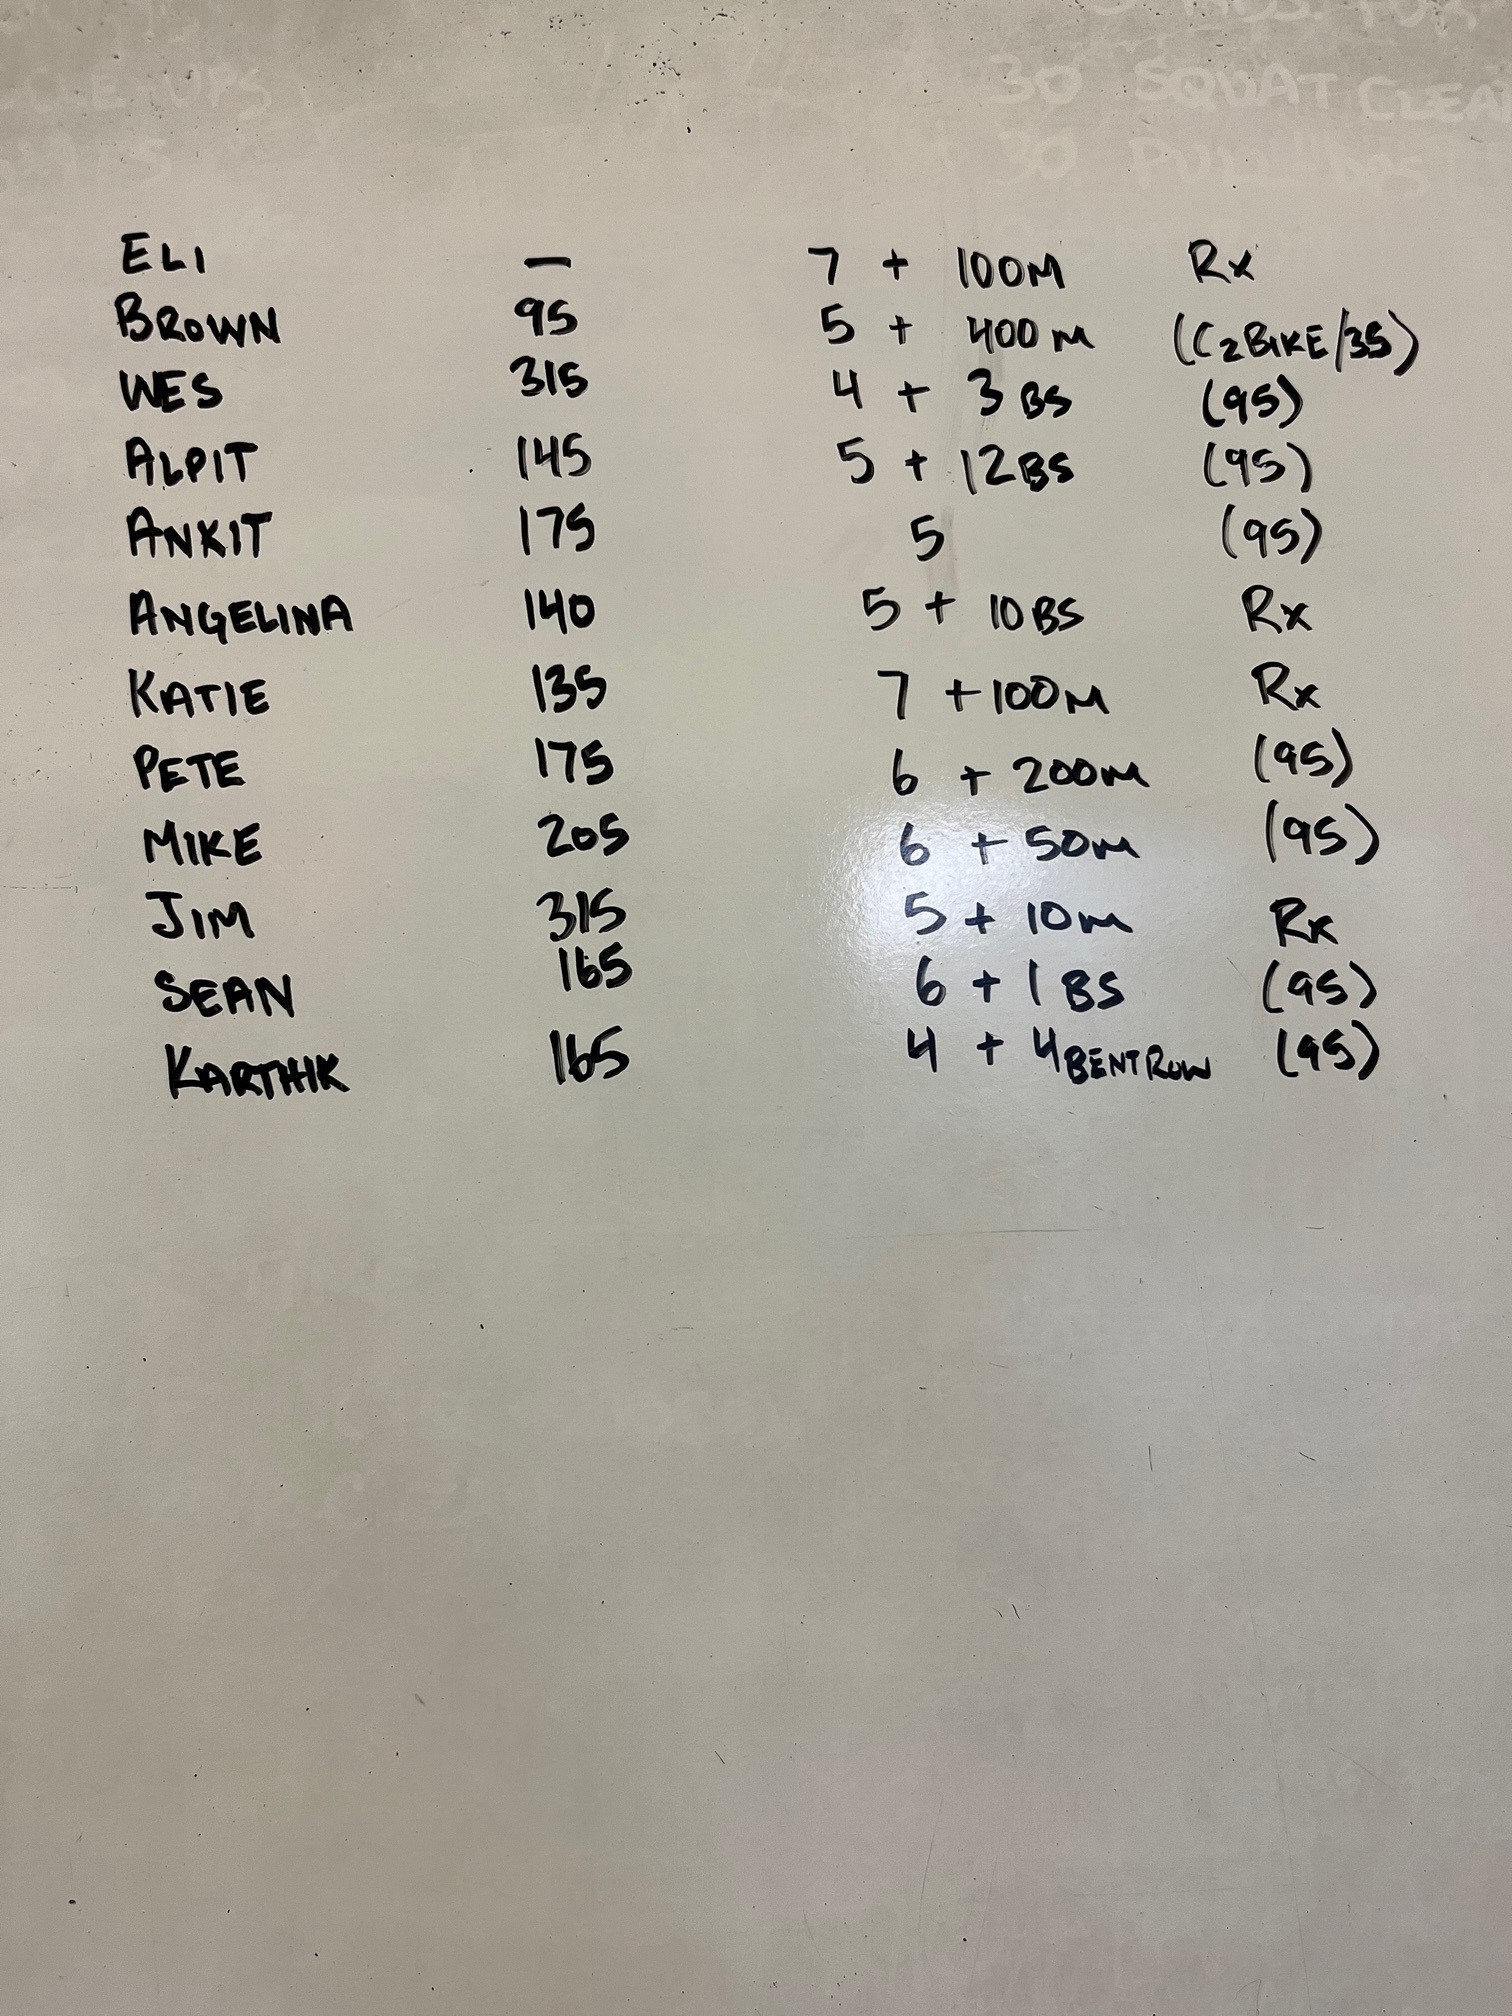 30 SQUAT CLEA
30 PULL-UPS
ELI — 7 + 100M Rx
BROWN 95 5 + 400M (C2BIKE/35)
WES 315 4 + 3 BS (95)
ALPIT 145 5 + 12BS (95)
ANKIT 175 5 (95)
ANGELINA 140 5 + 10BS Rx
KATIE 135 7 + 100M Rx
PETE 175 6 + 200M (95)
MIKE 205 6 + 50M (95)
JIM 315 5 + 10M Rx
SEAN 165 6 + 1 BS (95)
KARTHIK 165 4 + 4 BENT ROW (95)